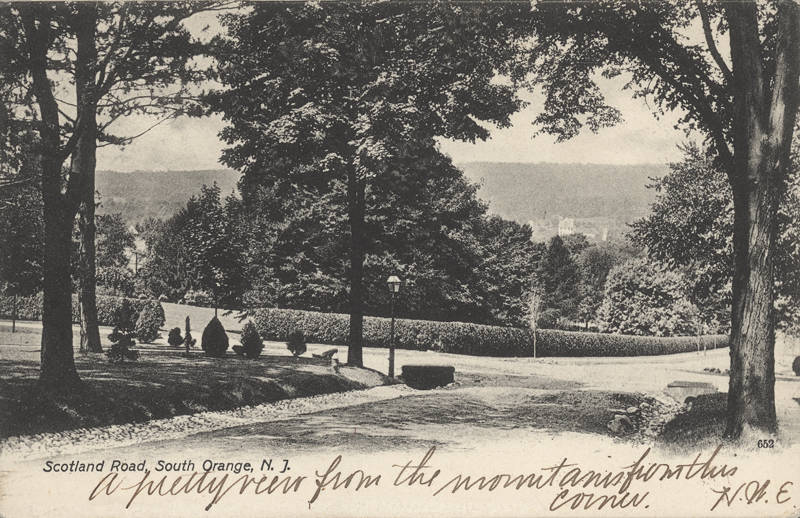 652
Scotland Road, South Orange, N. J.
A pretty view from the mountains from this
corner. N.W.E